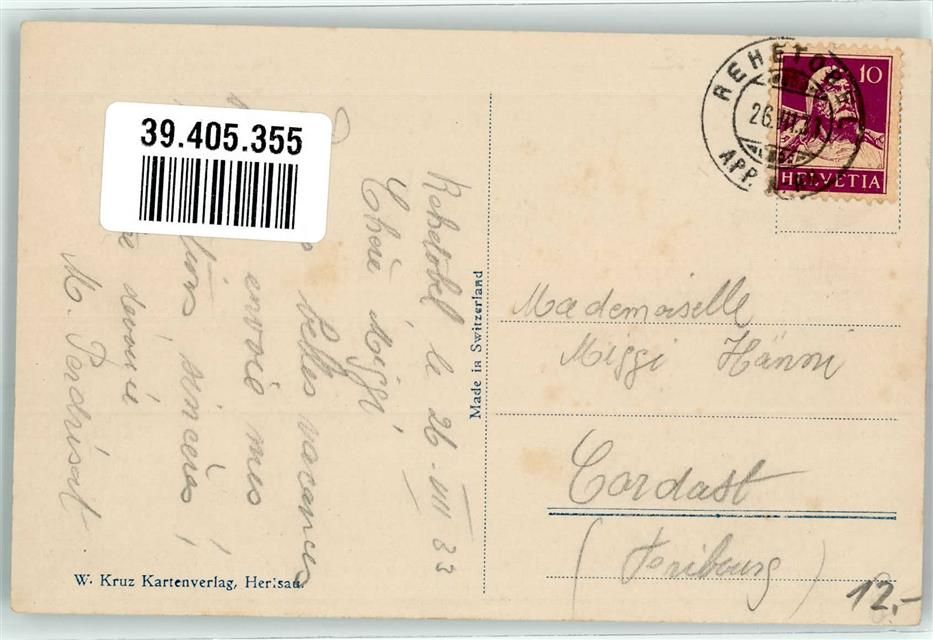 39.405.355
Rehetobel le 26.VIII 33
Chère Miggi
belles vacances
envoie mes
sincères
dévouée
M. Perdrisat
Made in Switzerland
W. Kruz Kartenverlag, Herisau.
REHETOBEL
26.VIII.33
APP.
10
HELVETIA
Mademoiselle
Miggi Hänni
Cordast
(Fribourg)
12.-